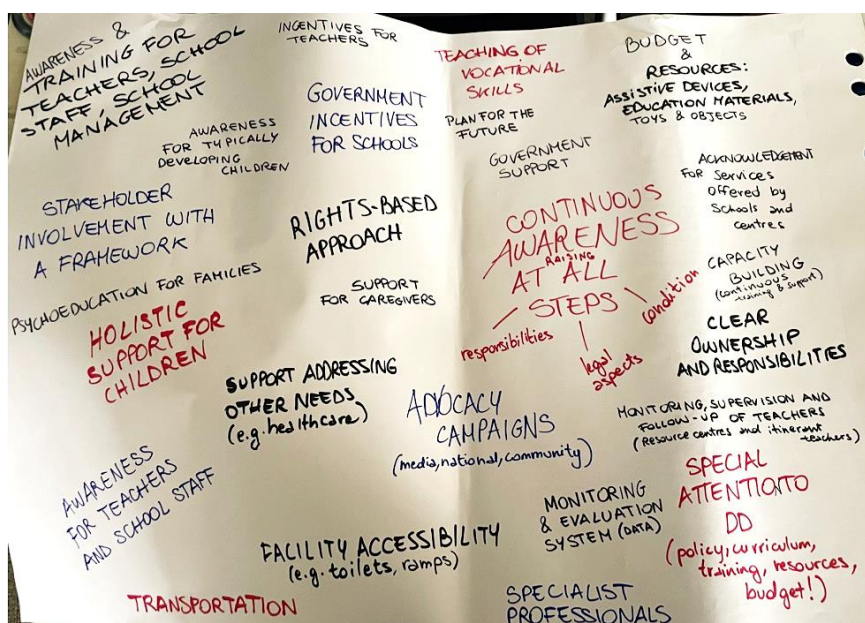 AWARENESS &
TRAINING FOR
TEACHERS, SCHOOL
STAFF, SCHOOL
MANAGEMENT
INCENTIVES FOR
TEACHERS
TEACHING OF
VOCATIONAL
SKILLS
BUDGET
&
RESOURCES:
ASSISTIVE DEVICES,
EDUCATION MATERIALS,
TOYS & OBJECTS
AWARENESS
FOR TYPICALLY
DEVELOPING
CHILDREN
GOVERNMENT
INCENTIVES
FOR SCHOOLS
PLAN FOR THE
FUTURE
GOVERNMENT
SUPPORT
ACKNOWLEDGEMENT
FOR Services
Offered by
Schools and
centres
STAKEHOLDER
INVOLVEMENT WITH
A FRAMEWORK
RIGHTS-BASED
APPROACH
CONTINUOUS
AWARENESS
RAISING
AT ALL
STEPS
responsibilities
legal
aspects
condition
CAPACITY
BUILDING
(continuous
training & support)
PSYCHOEDUCATION FOR FAMILIES
SUPPORT
FOR CAREGIVERS
HOLISTIC
SUPPORT FOR
CHILDREN
CLEAR
OWNERSHIP
AND RESPONSIBILITIES
SUPPORT ADDRESSING
OTHER NEEDS
(e.g. healthcare)
ADVOCACY
CAMPAIGNS
(media, national, community)
MONITORING, SUPERVISION AND
FOLLOW-UP OF TEACHERS
(Resource centres and itinerant
teachers)
AWARENESS
FOR TEACHERS
AND SCHOOL STAFF
MONITORING
& EVALUATION
SYSTEM (DATA)
SPECIAL
ATTENTION TO
DD
(policy, curriculum,
training, resources,
budget!)
FACILITY ACCESSIBILITY
(e.g. toilets, ramps)
TRANSPORTATION
SPECIALIST
PROFESSIONALS